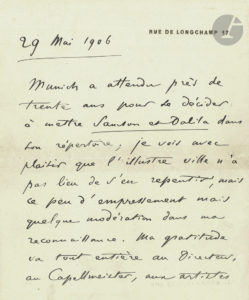 RUE DE LONGCHAMP 17
29 Mai 1906
Munich a attendu près de
trente ans pour se décider
à mettre Samson et Dalila dans
son répertoire ; je vois avec
plaisir que l'illustre ville n'a
pas lieu de s'en repentir, mais
ce peu d'empressement mais
quelque modération dans ma
reconnaissance. Ma gratitude
va tout entière au Directeur,
au Capellmeister, aux artistes